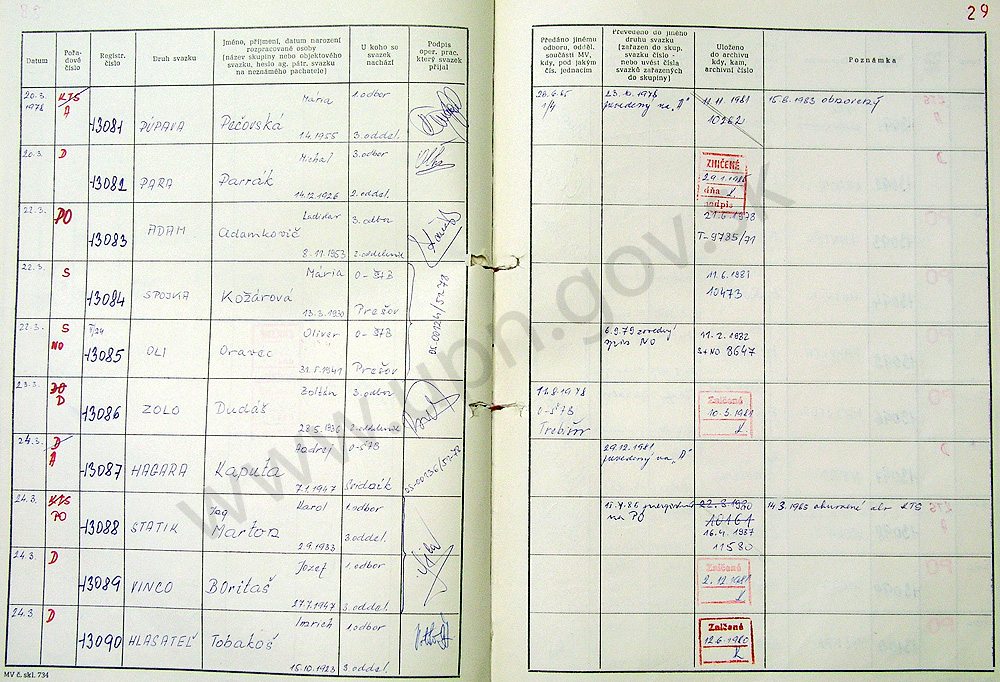 29
Datum
Pořadové číslo
Registr. číslo
Druh svazku
Jméno, příjmení, datum narození rozpracované osoby
(název skupiny nebo objektového svazku, heslo ag. pátr. svazku na neznámého pachatele)
U koho se svazek nachází
Podpis oper. prac. který svazek přijal
Předáno jinému odboru, odděl. součásti MV, kdy, pod jakým čís. jednacím
Převedeno do jiného druhu svazku (zařazen do skup. svazku číslo - nebo uvést čísla svazků zařazených do skupiny)
Uloženo do archivu kdy, kam, archivní číslo
Poznámka
20.3. 1978
KTS
A
13081
PÚPAVA
Mária
Pečovská
1.4.1955
1. odbor
3. oddel.
1/4
11.11.1981
10262
15.8.1983
20.3.
D
13082
PARA
Michal
Parrák
14.12.1926
3. odbor
2. oddel.
ZNIČENÉ
dňa
podpis
22.3.
PO
13083
ADAM
Ladislav
Adamkovič
8.11.1953
3. odbor
2. oddelenie
21.6.1978
T-9785/71
22.3.
S
13084
SPOJKA
Mária
Kožárová
13.3.1930
O-ŠTB
Prešov
11.6.1981
10473
22.3.
S
NO
13085
OLI
Oliver
Oravec
O-ŠTB
Prešov
6.9.79 zavedený spis NO
11.2.1982
8647
23.3.
D
13086
ZOLO
Zoltán
Dudáš
28.5.1936
3. odbor
2. oddelenie
O-ŠTB
Trebišov
Zničené
10.3.1981
24.3.
D
A
13087
HAGARA
Andrej
Kaputa
7.1.1947
O-ŠTB
Svidník
29.12.1981
prevedený na "A"
24.3.
KTS
PO
13088
STATIK
Ing
Karol
Marton
2.9.1933
1. odbor
3. oddel.
na PO
16.4.1987
11580
24.3.
D
13089
VINCO
Jozef
Boritaš
27.7.1947
1. odbor
3. oddel.
Zničené
2.12.1981
24.3.
D
13090
HLASATEĽ
Imrich
Tobakoš
15.10.1923
1. odbor
3. oddel.
Zničené
12.6.1980
MV č. skl. 734
www.upn.gov.sk